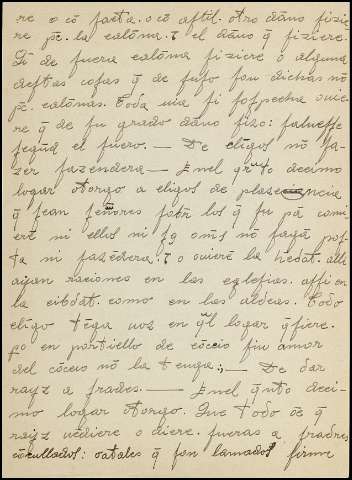 re o cō fasta. o cō astil. otro dāno fizie
re pē. la calōnia. τ el dāno q̄ fiziere.
Si de fuera calōnia fiziere o alguna
destas cosas q̄ de suso son dichas nō
pē. calōnias. Toda uia si sospecha ouie
re q̄ de su grado dāno fizo: saluesse
segūd el fuero. — De clīgos nō fa-
zer fazendera — Enel qrto decimo
logar otorgo a clīgos de plazencia
q̄ sean señores los q̄ su pā comi
erē ni ellos ni omīs nō fagā pos-
ta ni fazēdera. τ o ouierē la hedat. alli
aijan raciones en las eglesias. assi en
la cibdat. como en las aldeas. Todo
clīgo tēga uoz en q̄l logar q̄siere.
po en portiello de cōceio sin amor
del cōceio nō la tenga. — De dar
rayz a frades. — Enel q̄nto deci-
mo logar otorgo. Que todo ōe q̄
raijz uēdiere o diere. fueras a fradres
cōcullados: o atales q̄ son lamados firme